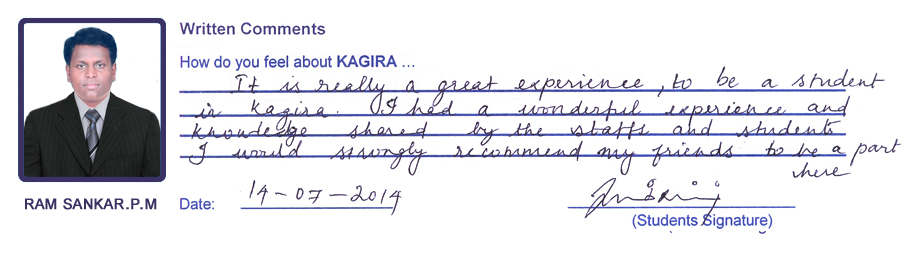 Written Comments
How do you feel about KAGIRA ...
It is really a great experience, to be a student
in Kagira. I had a wonderful experience and
knowledge shared by the staffs and students
I would strongly recommend my friends to be a part
here
RAM SANKAR.P.M
Date: 14-07-2014
(Students Signature)